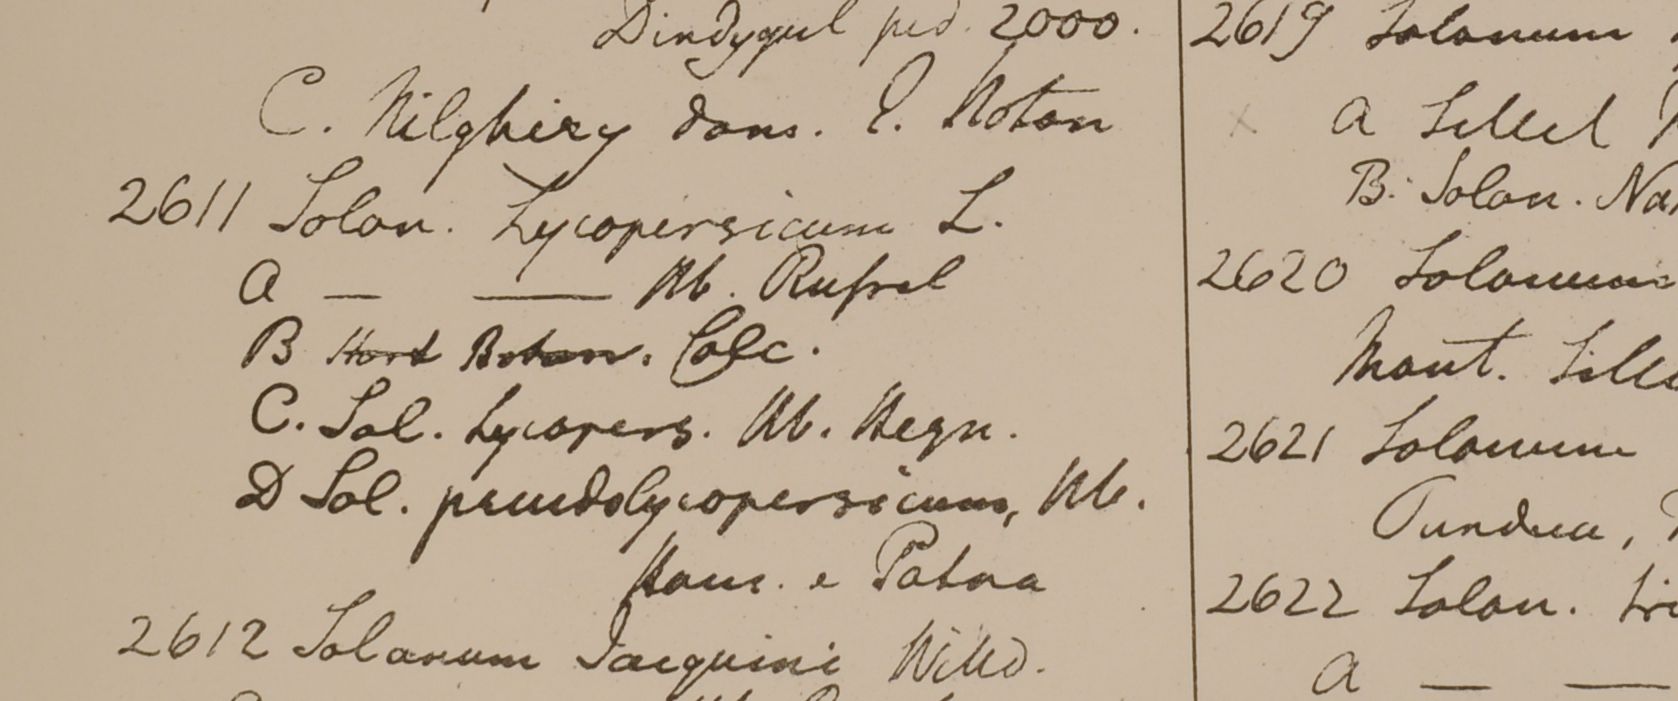 Dindygul ped. 2000.
C. Nilghiry dom. E. Noton
2611 Solan. Lycopersicum L.
a — — Hb. Russel
B Hort Botan. Calc.
C. Sol. Lycopers. Hb. Heyn.
D Sol. pseudolycopersicum, Hb.
Ham. e Patna
2612 Solanum Jacquini Willd.
2619 Solanum
a Sillet
B. Solan.
2620 Solanum
Mont.
2621 Solanum
Pundua,
2622 Solan.
a — —